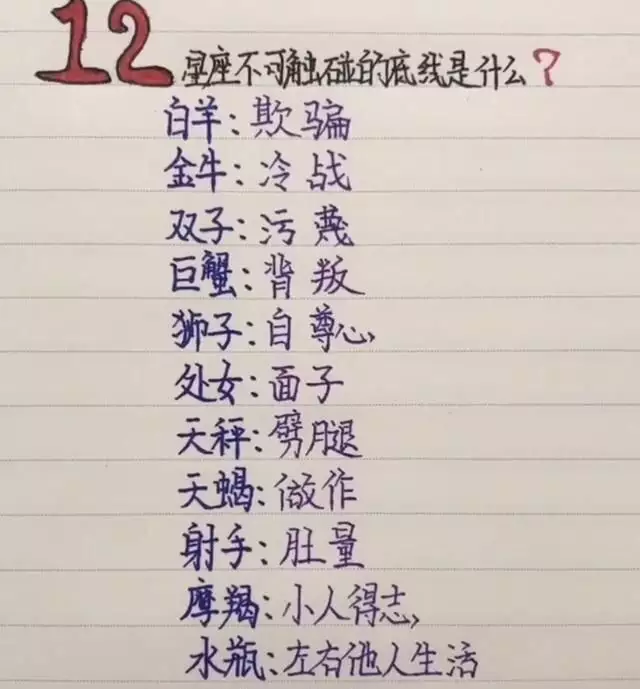 12星座不可触碰的底线是什么?
白羊:欺骗
金牛:冷战
双子:污蔑
巨蟹:背叛
狮子:自尊心
处女:面子
天秤:劈腿
天蝎:做作
射手:肚量
摩羯:小人得志
水瓶:左右他人生活